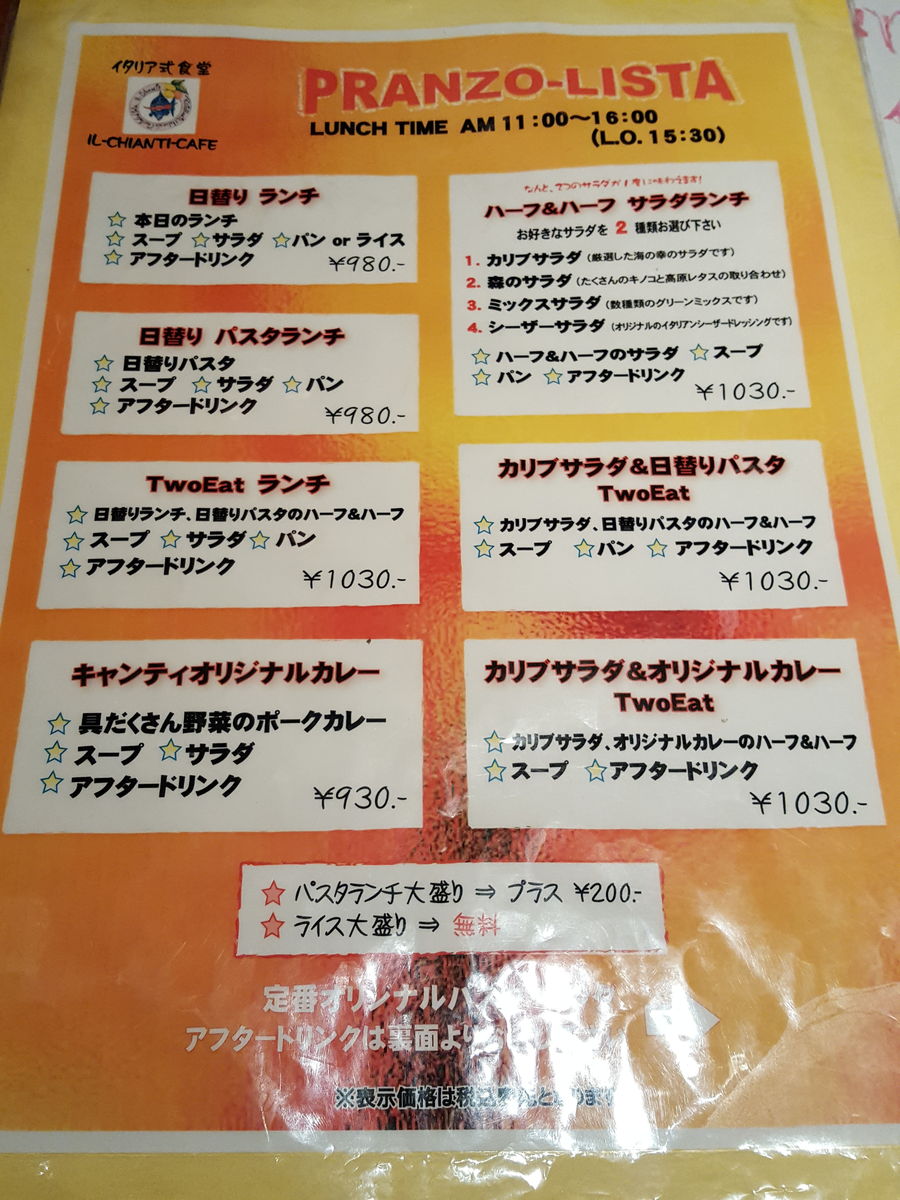 イタリア式食堂
IL-CHIANTI-CAFE
PRANZO-LISTA
LUNCH TIME AM 11:00〜16:00
(L.O. 15:30)
日替り ランチ
☆ 本日のランチ
☆ スープ ☆ サラダ ☆ パン or ライス
☆ アフタードリンク ¥980.-
日替り パスタランチ
☆ 日替りパスタ
☆ スープ ☆ サラダ ☆ パン
☆ アフタードリンク ¥980.-
TwoEat ランチ
☆ 日替りランチ、日替りパスタのハーフ&ハーフ
☆ スープ ☆ サラダ ☆ パン
☆ アフタードリンク ¥1030.-
キャンティオリジナルカレー
☆ 具だくさん野菜のポークカレー
☆ スープ ☆ サラダ
☆ アフタードリンク ¥930.-
なんと、2つのサラダが1度に味わえます!
ハーフ&ハーフ サラダランチ
お好きなサラダを 2 種類お選び下さい
1. カリブサラダ (厳選した海の幸のサラダです)
2. 森のサラダ (たくさんのキノコと高原レタスの取り合わせ)
3. ミックスサラダ (数種類のグリーンミックスです)
4. シーザーサラダ (オリジナルのイタリアンシーザードレッシングです)
☆ ハーフ&ハーフのサラダ ☆ スープ
☆ パン ☆ アフタードリンク
¥1030.-
カリブサラダ&日替りパスタ
TwoEat
☆ カリブサラダ、日替りパスタのハーフ&ハーフ
☆ スープ ☆ パン ☆ アフタードリンク
¥1030.-
カリブサラダ&オリジナルカレー
TwoEat
☆ カリブサラダ、オリジナルカレーのハーフ&ハーフ
☆ スープ ☆ アフタードリンク
¥1030.-
☆ パスタランチ大盛り ⇒ プラス ¥200.-
☆ ライス大盛り ⇒ 無料
定番オリジナル
アフタードリンクは裏面より
※表示価格は税込